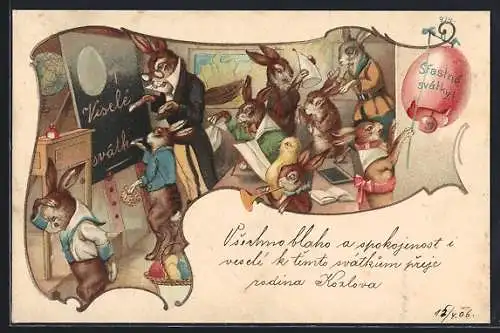 Veselé
svátk
Šťastné
svátky!
Všechno blaho a spokojenost i
veselé k těmto svátkům přeje
rodina Kozlova
15/4. 06.